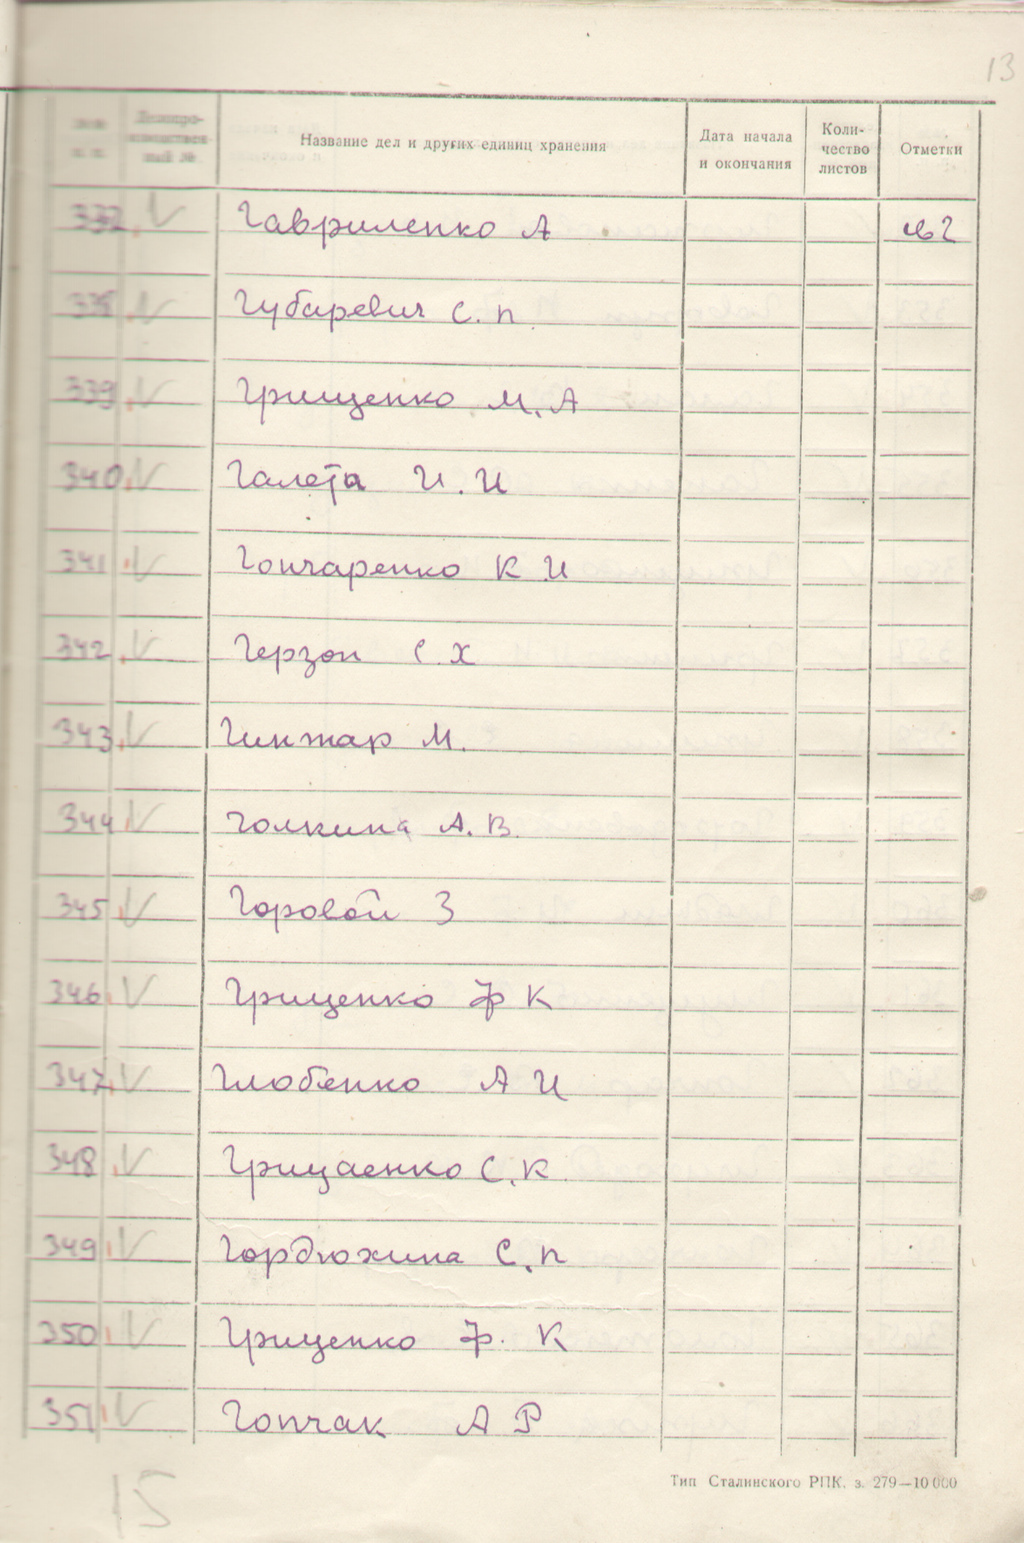 13
№№ п. п. Делопро- изводствен- ный № Название дел и других единиц хранения Дата начала и окончания Коли- чество листов Отметки
337. V Гавриленко А
338. V Губаревич С. П
339. V Грищенко М. А
340. V Галета И. И
341. V Гончаренко К И
342. V Герзон С. Х
343. V Гинжар М.
344. V Голкина А. В.
345. V Горовой З
346. V Грищенко Ф К
347. V Глобенко А И
348. V Грицаенко С. К
349. V Гордюхина С. П
350. V Грищенко Ф. К
351. V Гончак А Р
Тип Сталинского РПК. з. 279—10 000
15